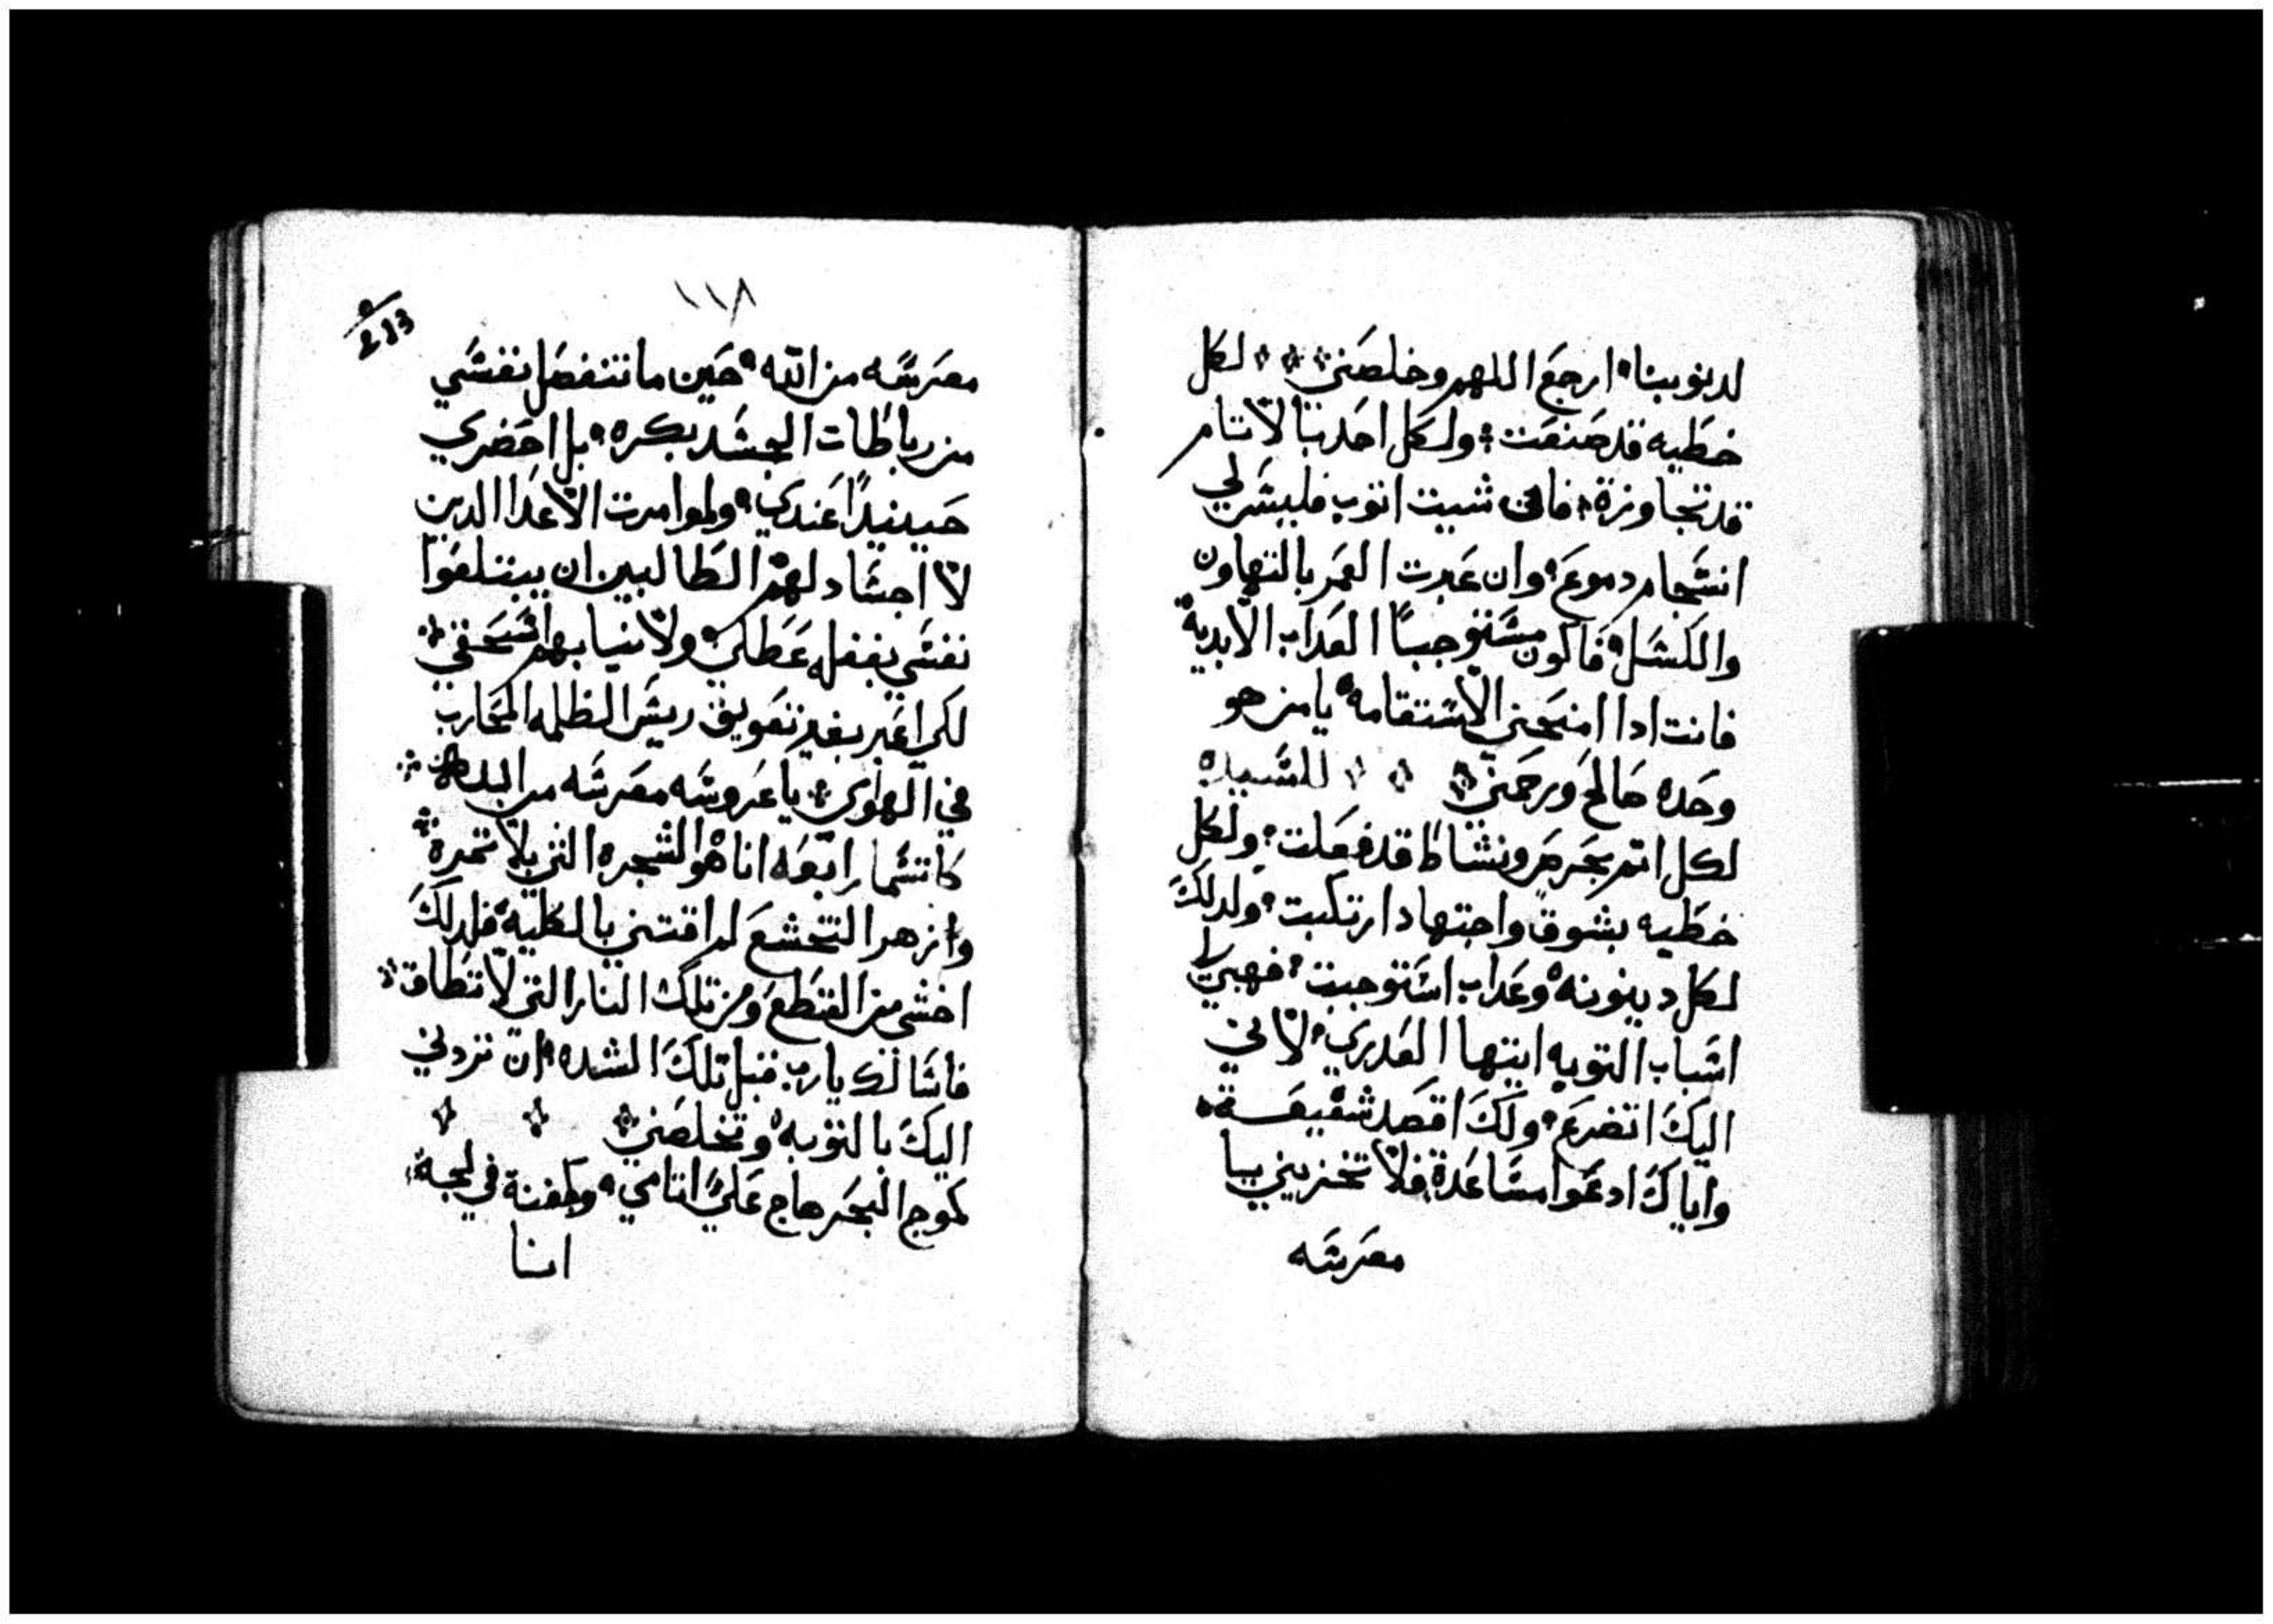 لدنوبنا ارجع اللهم وخلصني لكل
خطيه قد صنعت ولكل احدتا لاتام
قد تجاوزة فان شيت اتوب فليشر لي
انسجام دموع وان عبرت العمر بالتهاون
والكسل فاكون مستوجبا العداب الابدية
فانت ادا امنحني الاستقامه يا من هو
وحده صالح ورحمني للسيده
لكل اتم بحرص ونشاط قد فعلت ولكل
خطيه بشوق واجتهاد ارتكبت ولدلك
لكل دينونه وعداب استوجبت فهبي لي
اسباب التوبه ايتها العدري لاني
اليك اتضرع ولك اقصد شفيعة
واياك ادعوا مساعدة فلا تخزيني يا
معرسه
١١٨
213
معرسه من الله حين ما تنفصل نفسي
من رباطات الجسد بكره بل احضري
حينيدا عندي ولموامرت الاعدا الدين
لا اجساد لهم الطالبين ان يبتلعوا
نفسي بغفله عطلي ولانيابهم اسحقي
لكي اعبر بغير تعويق ريس الظلمه المحارب
في الهوي يا عروسه معرسه من الله
كاتسما رابعه انا هو الشجره التي بلا تمرة
وازهر التخشع لم اقتني بالكلية فلدلك
اخشي من القطع ومن تلك النار التي لا تطاق
فاسالك يارب قبل تلك الشده ان تردني
اليك بالتوبه وتخلصني
كموج البحر هاج علي اتامي وكفنة في لجة
انا